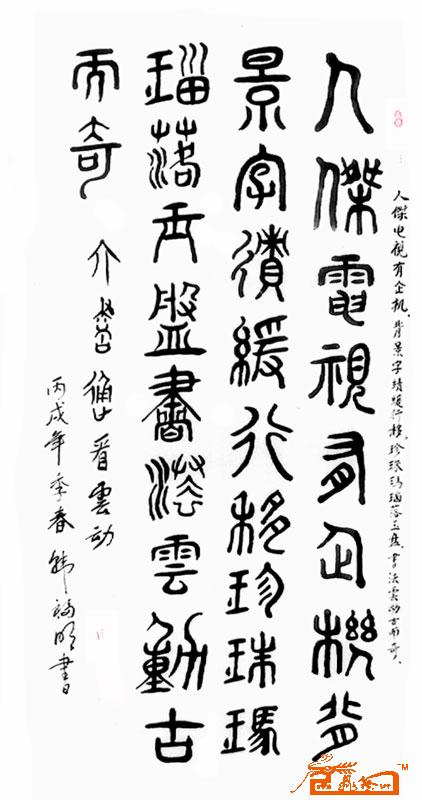 人傑电视有企机，背景字绩缓行移，珍珠玛瑙落玉盘，書法雲动古而奇，
人傑電視有企機背
景字績緩行移珍珠瑪
瑙落玉盤書灋雲動古
而奇 看雲动
丙戌年季春韩福明書